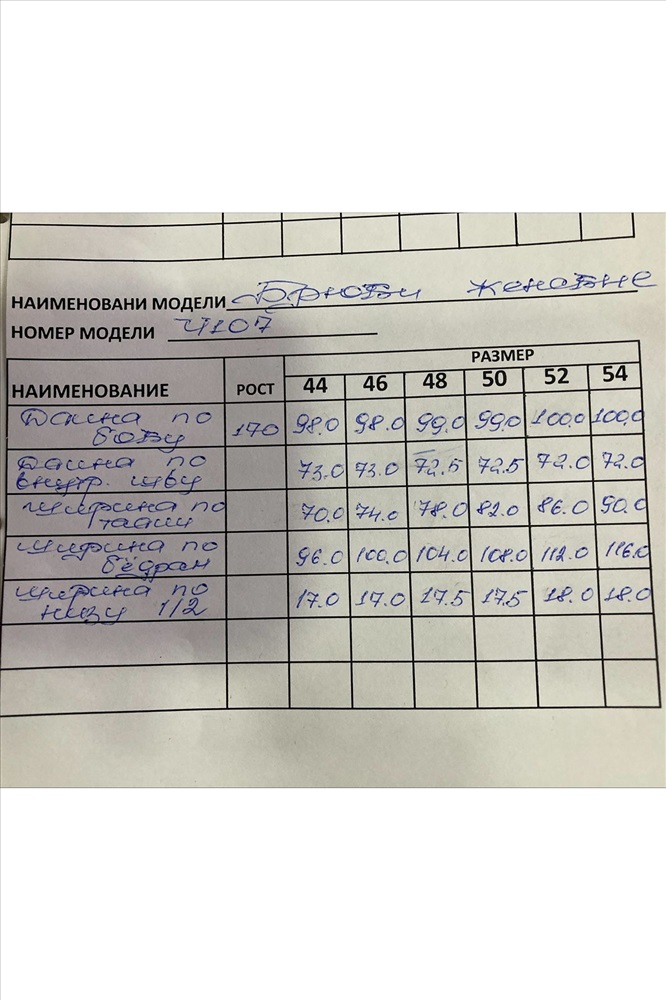 НАИМЕНОВАНИ МОДЕЛИ Брюки женские
НОМЕР МОДЕЛИ 4107
РАЗМЕР
НАИМЕНОВАНИЕ РОСТ 44 46 48 50 52 54
Длина по боку 170 98.0 98.0 99.0 99.0 100.0 100.0
Длина по внутр. шву 73.0 73.0 72.5 72.5 72.0 72.0
ширина по талии 70.0 74.0 78.0 82.0 86.0 90.0
ширина по бёдрам 96.0 100.0 104.0 108.0 112.0 116.0
ширина по низу 1/2 17.0 17.0 17.5 17.5 18.0 18.0